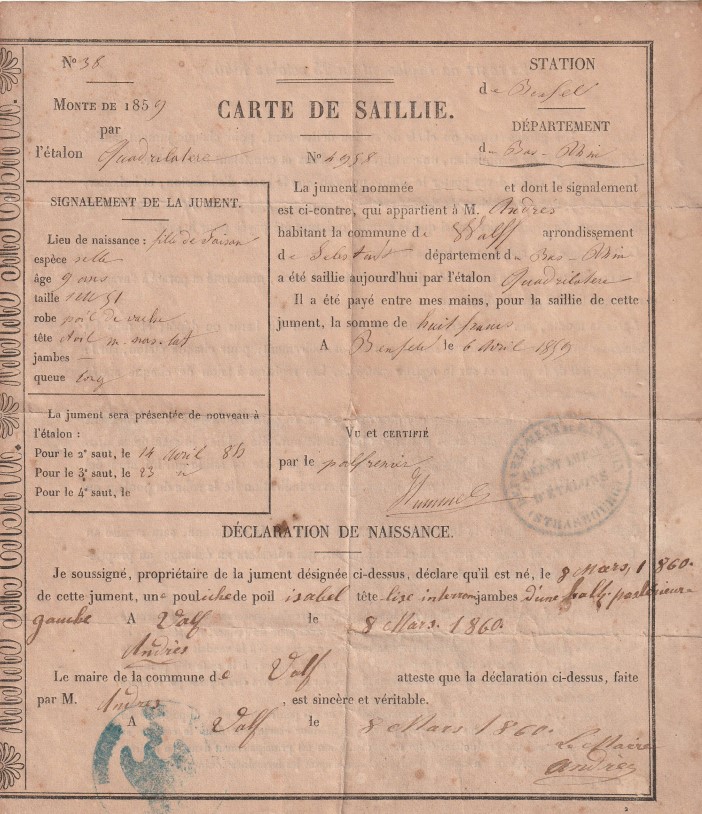 N° 38
MONTE DE 1859
par
l'étalon Quadrilatere
CARTE DE SAILLIE.
N° 4958
STATION
de Benfeld
DÉPARTEMENT
du Bas-Rhin
SIGNALEMENT DE LA JUMENT.
Lieu de naissance : fille de Faison
espèce selle
âge 9 ans
taille 1 51
robe poil de vache
tête
jambes —
queue
La jument sera présentée de nouveau à
l'étalon :
Pour le 2e saut, le 14 avril
Pour le 3e saut, le 23
Pour le 4e saut, le
La jument nommée et dont le signalement
est ci-contre, qui appartient à M. Andrès
habitant la commune de Walff arrondissement
de Selestatt département du Bas-Rhin
a été saillie aujourd'hui par l'étalon Quadrilatere
Il a été payé entre mes mains, pour la saillie de cette
jument, la somme de huit francs
A Benfeld le 6 avril 1859
VU ET CERTIFIÉ
par le palfrenier
DÉPÔT IMP.
D'ÉTALONS
STRASBOURG
DÉCLARATION DE NAISSANCE.
Je soussigné, propriétaire de la jument désignée ci-dessus, déclare qu'il est né, le 8 Mars, 1860.
de cette jument, une pouliche de poil isabel tête lise interrom jambes d'une balz. postérieure
gauche A Valf le 8 Mars. 1860.
Andrès
Le maire de la commune de Valf atteste que la déclaration ci-dessus, faite
par M. Andres, est sincère et véritable.
A Valf le 8 Mars 1860.
Le Maire
Andrès
2